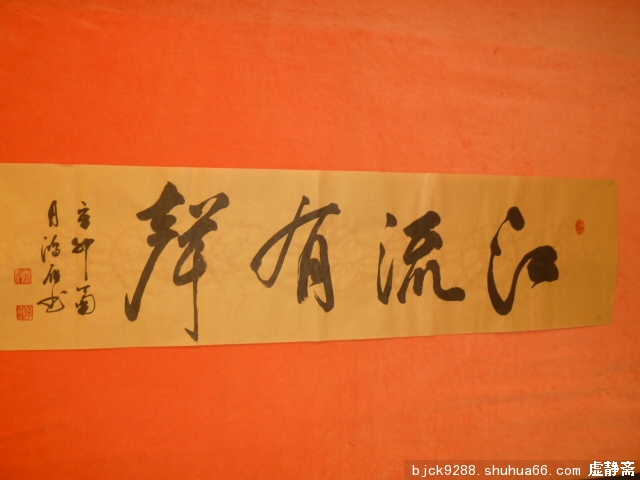 江流有聲
辛卯菊
月鴻雁书
bjck9288.shuhua66.com 虚静斋